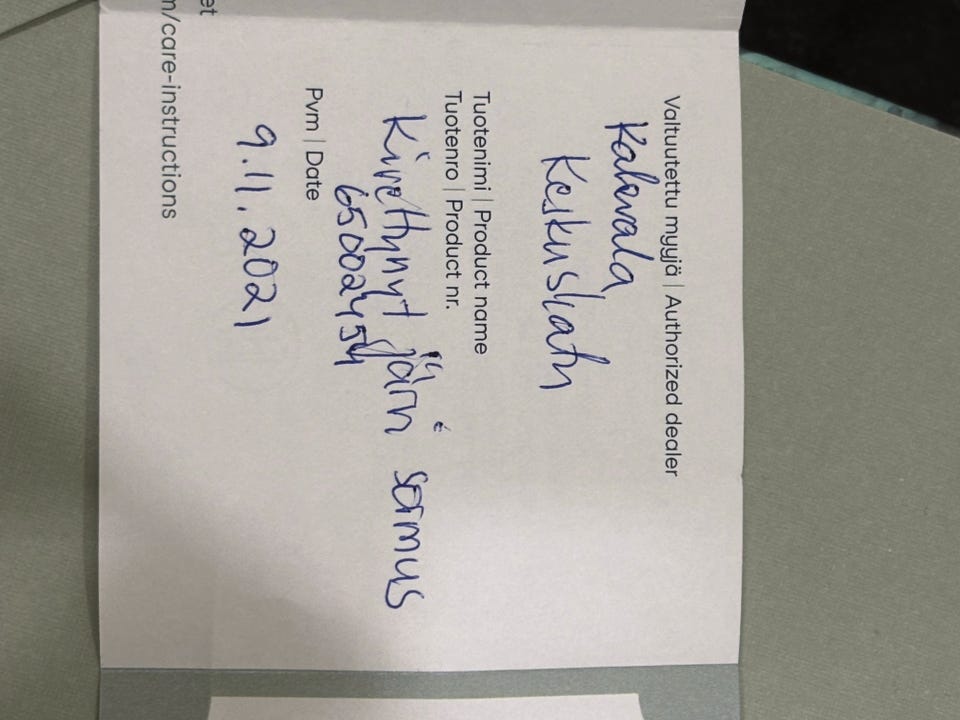 Valtuutettu myyjä | Authorized dealer
Kalevala
Keskuskatu
Tuotenimi | Product name
Tuotenro | Product nr.
Kirottynyt järvi sormus
65002454
Pvm | Date
9.11.2021
et
m/care-instructions